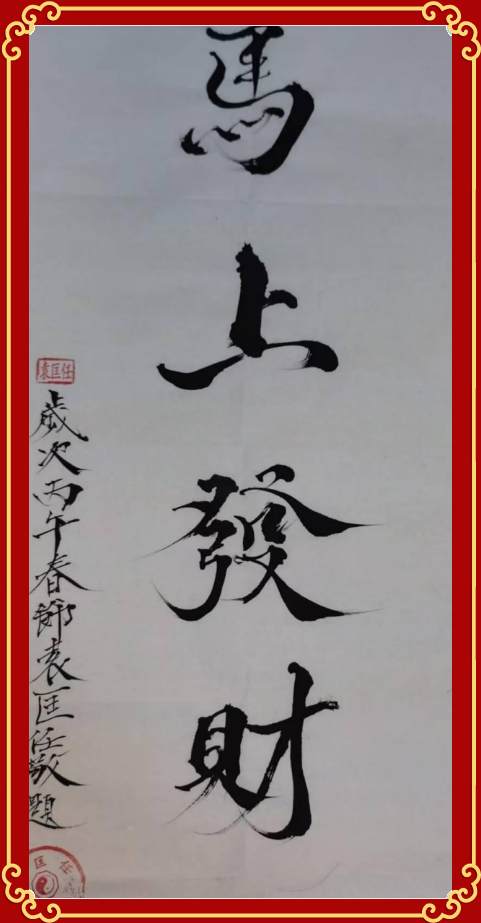 馬上發財
歲次丙午春節袁匡任敬題
任匡袁
匡任